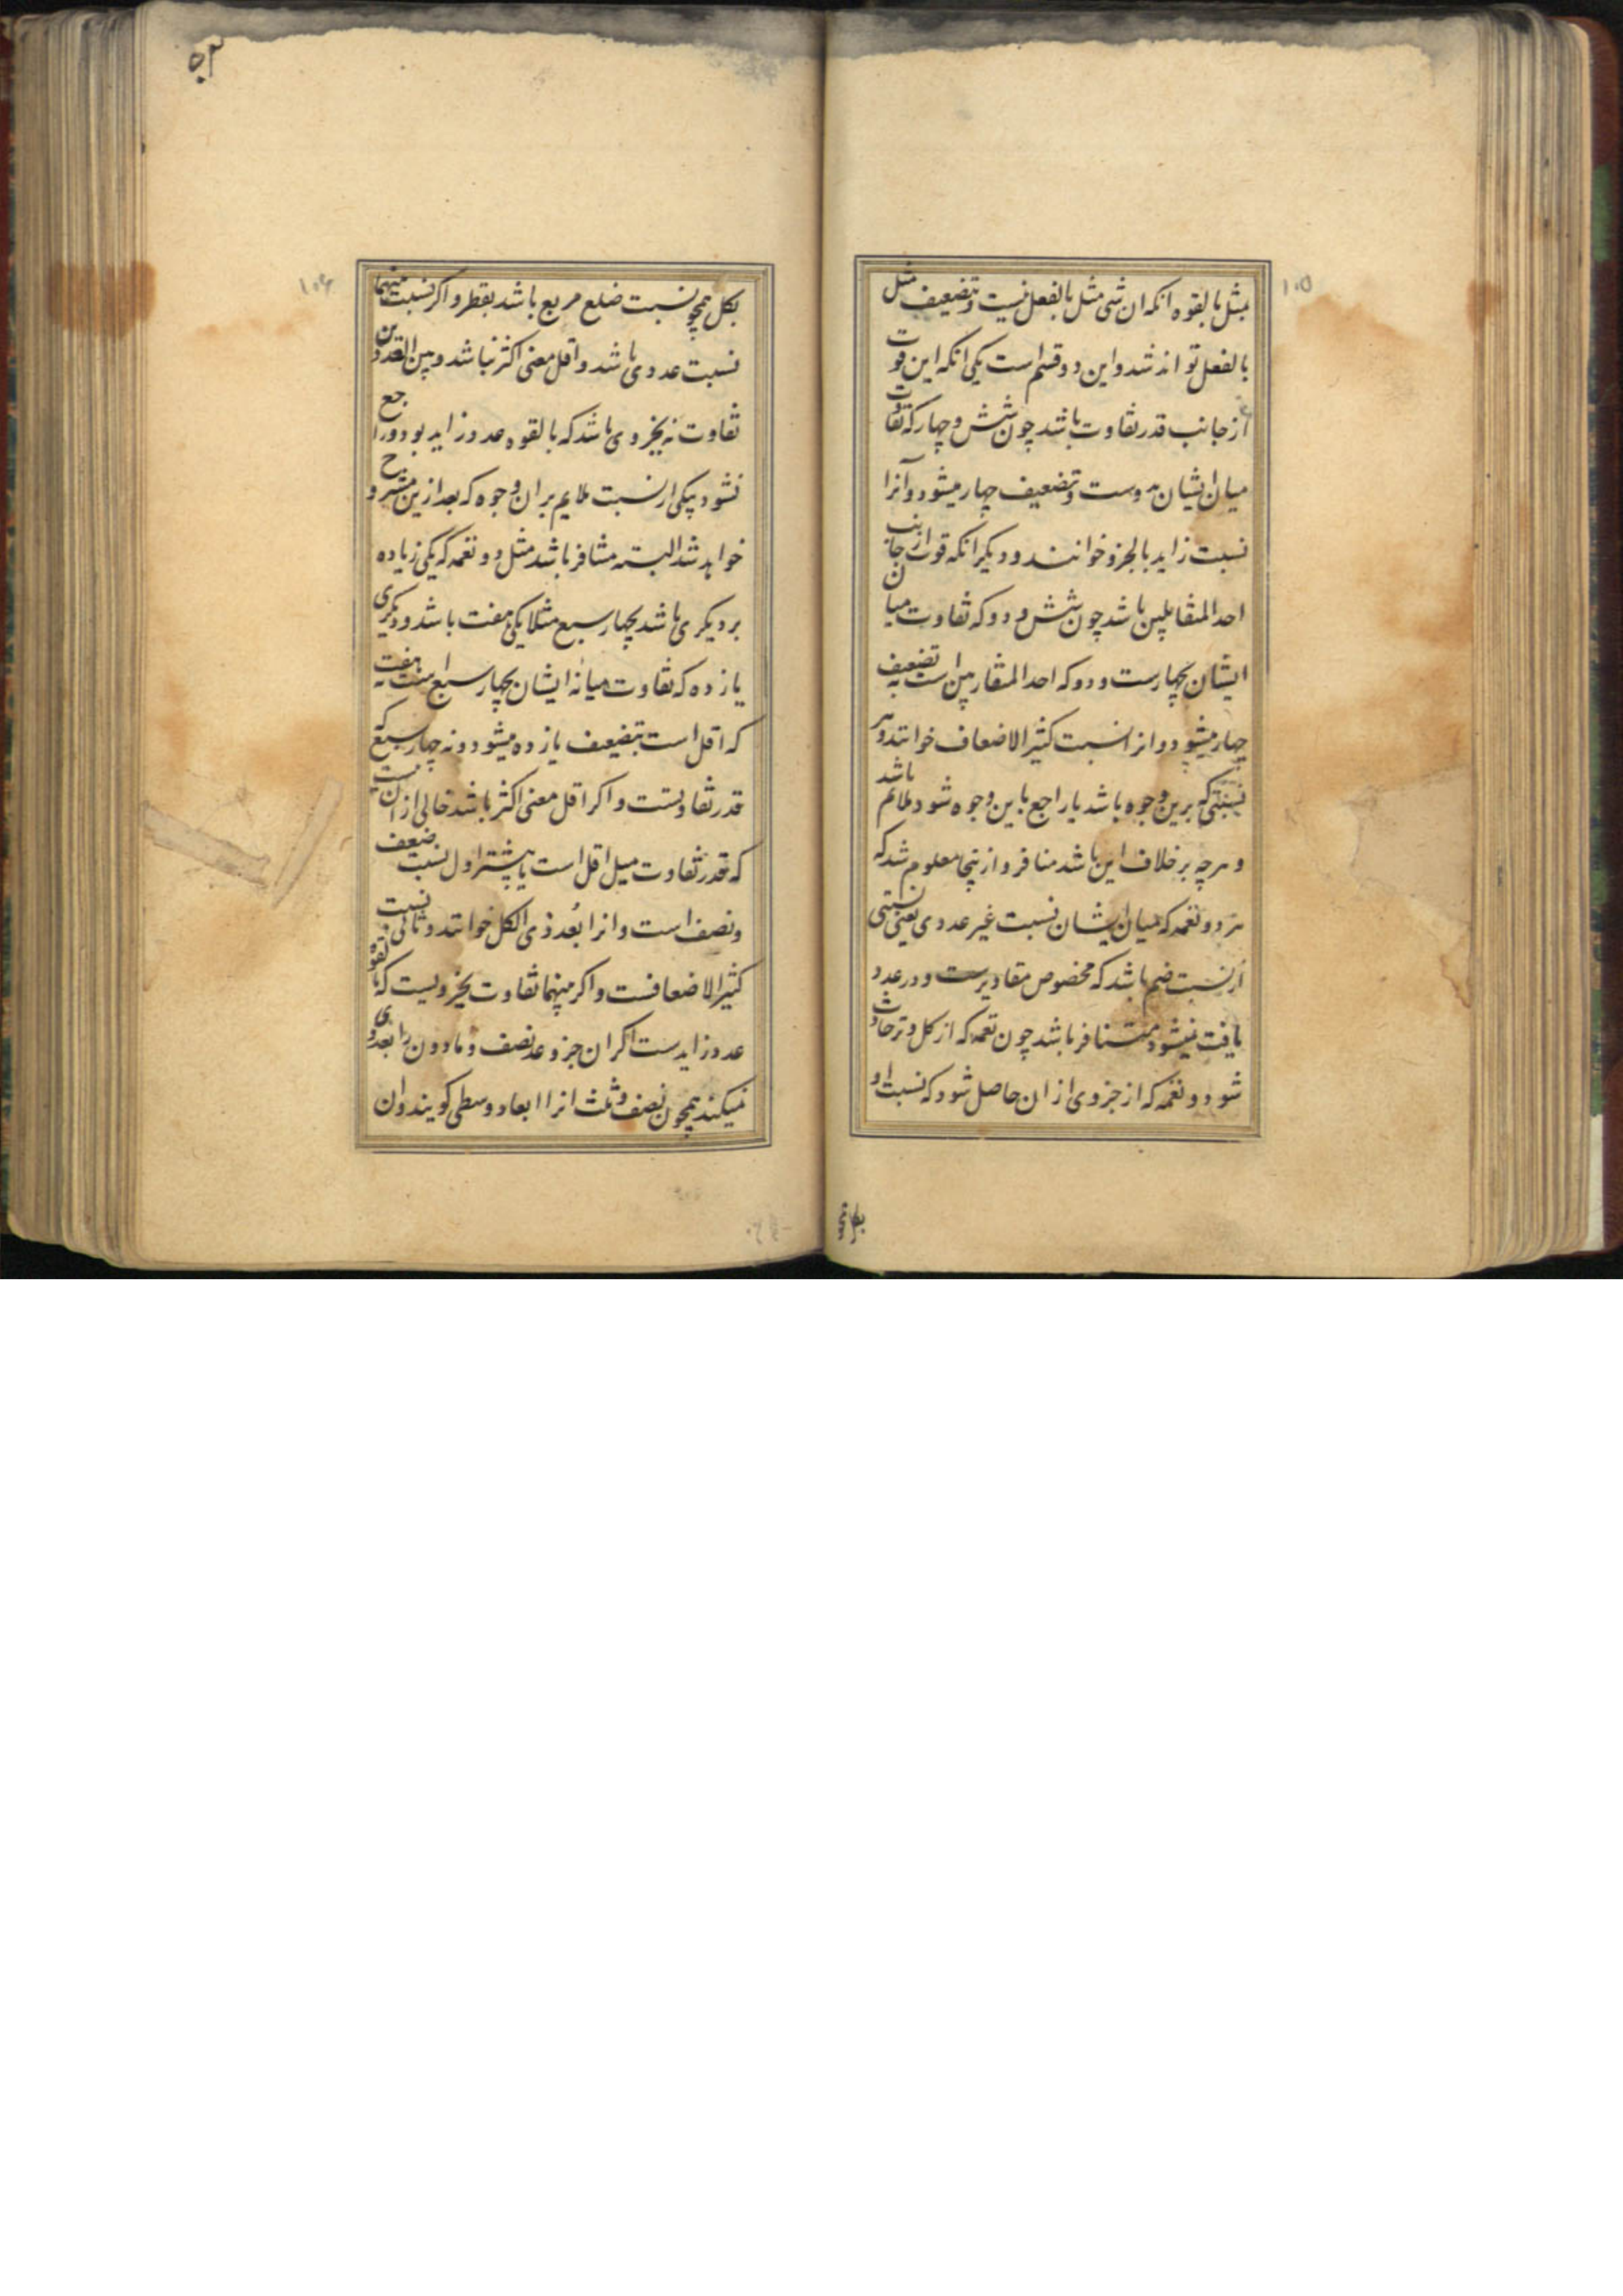 ۱۰۵
بمثل بالقوه انکه ان شی مثل بالفعل نیست و بتضعیف مثل
بالفعل تواند شد و این دو قسم است یکی انکه این قوت
از جانب قدر تفاوت باشد چون شش و چهار که تفاوت
میان ایشان بدوست و بتضعیف چهار میشود و آنرا
نسبت زاید بالجزو خوانند و دیگر انکه قوت از جانب
احد المتقابلین باشد چون شش و دو که تفاوت میان
ایشان بچهارست و دو که احد المتقاربین است به تضعیف
چهار میشود و انرا نسبت کثیر الاضعاف خوانند و هر
نسبتی که برین وجوه باشد یا راجع باین وجوه شود ملائم باشد
و هرچه بر خلاف این باشد منافر و ازینجا معلوم شد که
هر دو نغمه که میان ایشان نسبت غیر عددی یعنی نسبتی
از نسبت ضم باشد که مخصوص مقادیرست و در عدد
یافت نمیشود متنافر باشد چون نغمه که از کل وتر حادث
شود و نغمه که از جزوی از ان حاصل شود که نسبت او
بکل همچو
۵۳
۱۰۶
بکل همچو نسبت ضلع مربع باشد بقطر و اکر نسبت منهما
نسبت عددی باشد و اقل معنی اکثر نباشد و بین العددین
تفاوت نه بجزوی باشد که بالقوه عدد زاید بود و راجع
نشود بیکی از نسبت ملایم بران وجوه که بعد ازین مشروح
خواهد شد البته متنافر باشد مثل دو نغمه که یکی زیاده
بر دیکری باشد بچهار سبع مثلا یکی هفت باشد و دیکری
یازده که تفاوت میانه ایشان بچهار سبع است نه هفت
که اقل است بتضعیف یازده میشود و نه چهار سبع که
قدر تفاوتست و اکر اقل معنی اکثر باشد خالی از ان نیست
که قدر تفاوت مثل اقل است یا بیشتر اول نسبت ضعف
و نصف است و انرا بعد ذی الکل خوانند و ثانی نسبت
کثیر الاضعافست و اکر منهما تفاوت بجزویست که بالقوه
عدد زایدست اکر ان جزو عد نصف و مادون را بعدی
نمیکند همچون نصف و ثلث انرا ابعاد وسطی کویند و ان